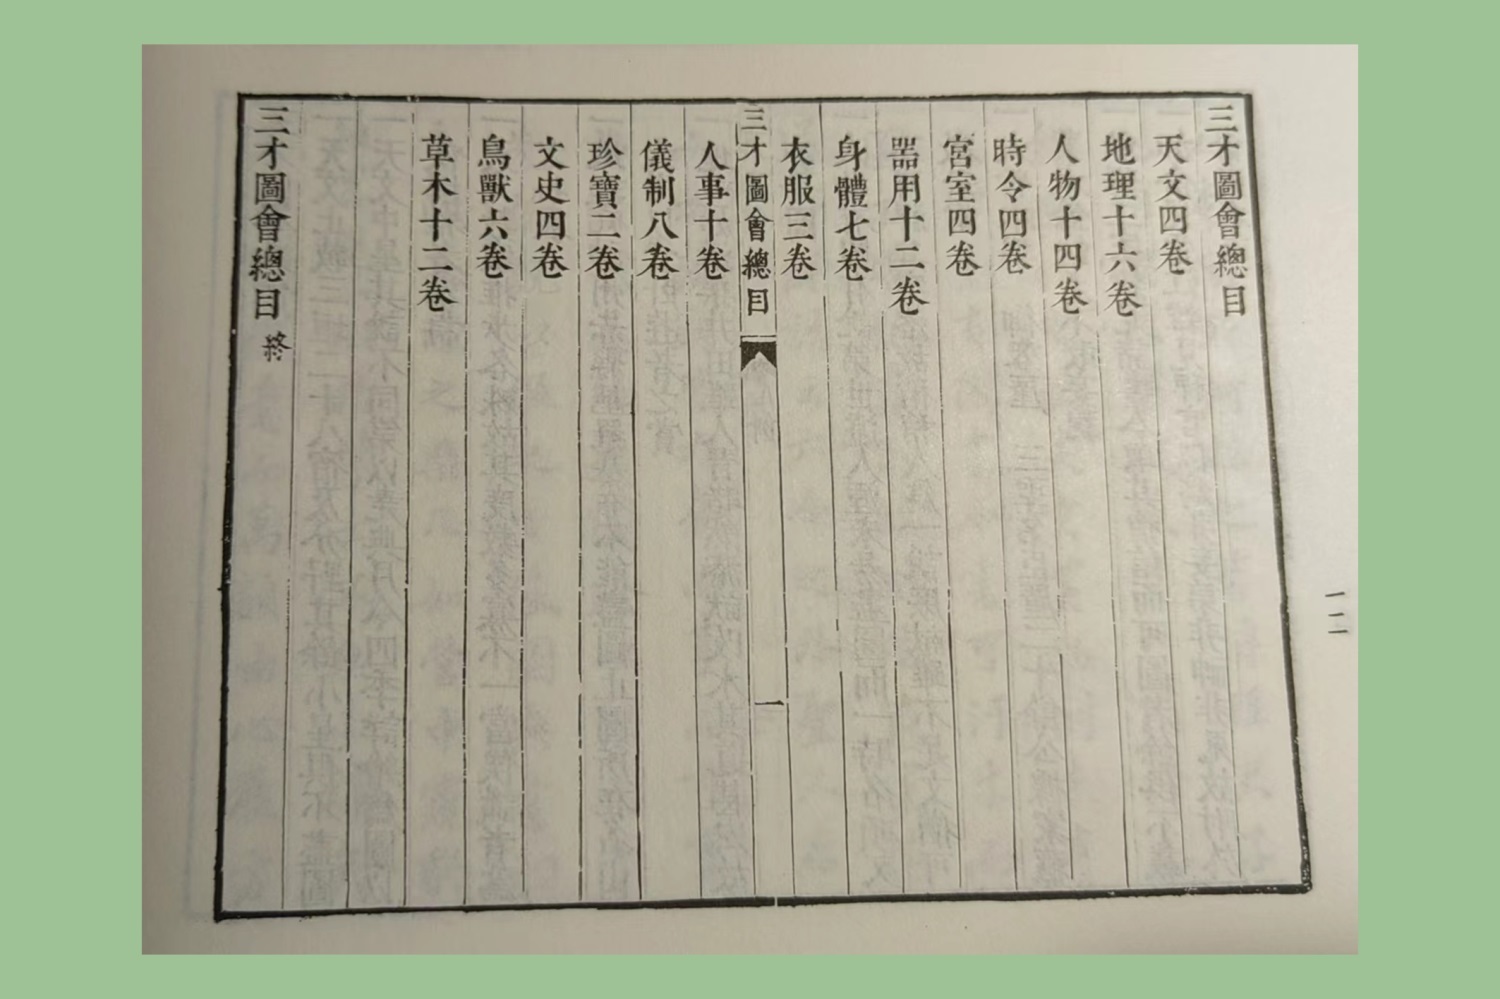 三才圖會總目
天文四卷
地理十六卷
人物十四卷
時令四卷
宮室四卷
器用十二卷
身體七卷
衣服三卷
三才圖會總目
一
人事十卷
儀制八卷
珍寶二卷
文史四卷
鳥獸六卷
草木十二卷
三才圖會總目 終
一二